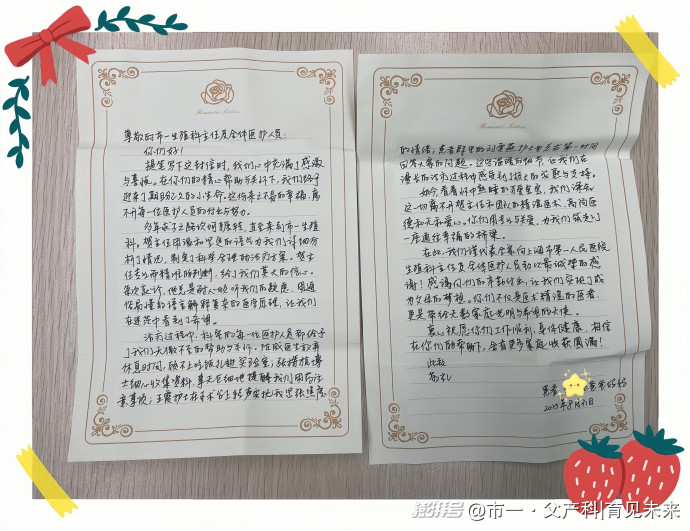 尊敬的市一生殖科主任及全体医护人员：
你们好！
提笔写下这封信时，我们心中充满了感激
与喜悦。在你们的精心帮助与关怀下，我们终于
迎来了期盼已久的小生命，这份来之不易的幸福，离
不开每一位医护人员的付出与努力。
多年求子之路坎坷颠簸，直至来到市一生殖
科，
主任用温和坚定的语气为我们详细分
析了情况，制定了科学合理的治疗方案。
主
任专业而精准的判断，给了我们莫大的信心。
每次就诊，他总是耐心倾听我们的疑虑，用通
俗易懂的语言解释复杂的医学原理，让我们
在迷茫中看到了希望。
治疗过程中，科里的每一位医护人员都给予
了我们无微不至的帮助与关怀。陈
医生
休息时间，顾不上吃饭
实验室；张
博
士细心收集资料，事无巨细地提醒我们用药注
意事项；王
护士在手术台上轻声安抚我
紧张
的情绪；患者群里的刘
护士
在第一时间
回答大家的问题。这些温暖的细节，让我们在
漫长的治疗过程中感受到极大的安慰与支持。
如今看着怀中熟睡的
宝宝，我们深知
这一切离不开
主任和团队的精湛医术、高尚医
德和无私爱心。你们用专业与关爱，为我们筑起了
一座通往幸福的桥梁。
在此，我们谨代表全家向上海市第一人民医院
生殖科主任及全体医护人员致以最诚挚的感
谢！感谢你们的辛勤付出，让我们实现了成
为父母的梦想。你们不仅是医术精湛的医者，
更是带给无数家庭光明与希望的天使。
衷心祝愿你们工作顺利，身体健康，相信
在你们的帮助下，会有更多家庭收获圆满！
此致
敬礼
患者
爸爸妈妈
8月31日
澎湃号@市一·父产科|育见未来